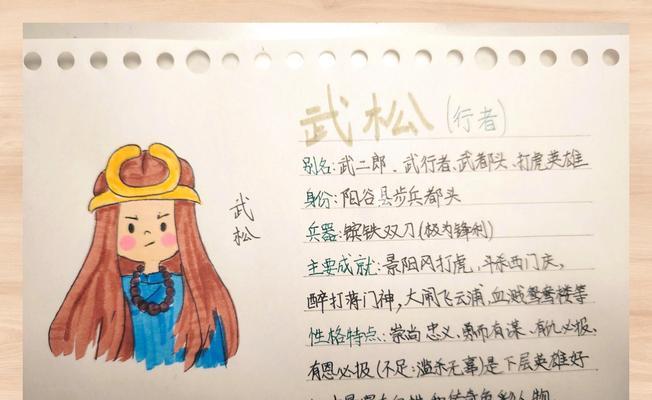 武松(行者)
武松
别名:武二郎、武行者、武都头、打虎英雄
身份:阳谷县步兵都头
兵器:镔铁双刀(极为锋利)
主要成就:景阳冈打虎,斗杀西门庆,
醉打蒋门神,大闹飞云浦,血溅鸳鸯楼等
性格特点:崇尚忠义、勇而有谋、有仇必报、
有恩必报(不足:滥杀无辜)是下层英雄好